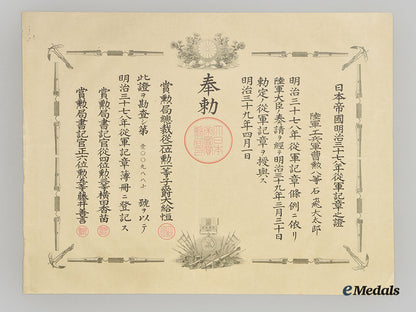 日本帝國明治三十七八年從軍記章之證
陸軍工兵軍曹勲八等石飛大太郎
明治三十七八年從軍記章條例ニ依リ
陸軍大臣ノ奏請ヲ經テ明治三十九年三月三十日
勅定ノ從軍記章ヲ授與ス
明治三十九年四月一日
奉勅
賞勲局總裁從二位勲一等子爵大給恒
此證ヲ勘査シ第 号ヲ以テ
明治三十七八年從軍記章簿冊ニ登記ス
賞勲局書記官從四位勲三等横田香苗
賞勲局書記官正六位勲五等藤井善言
eMedals